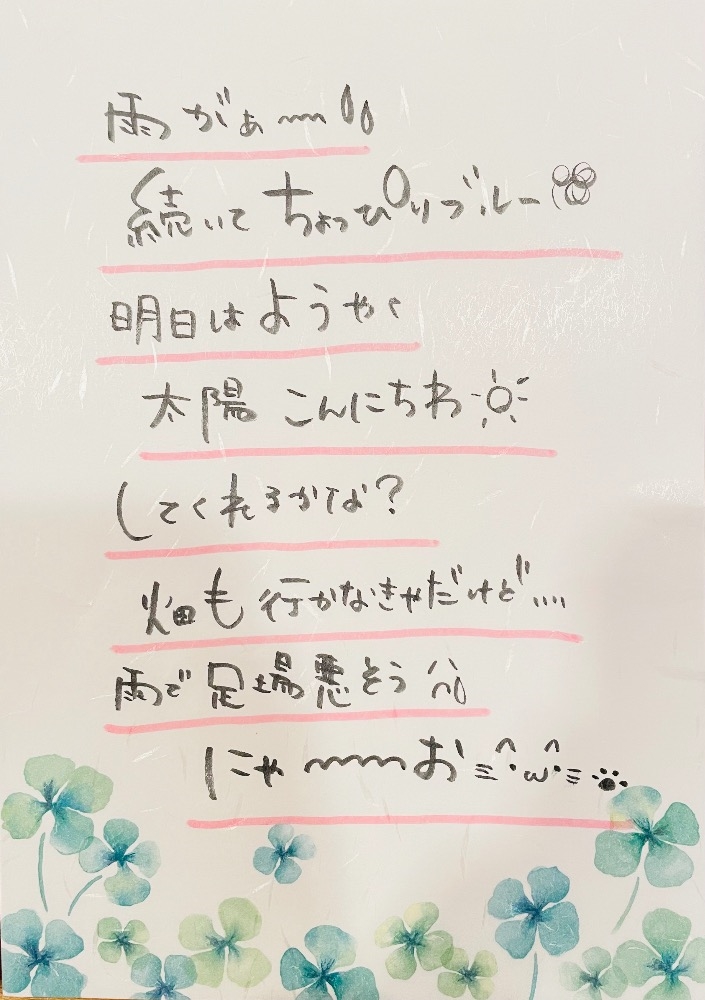 雨がぁ〰
続いてちょっぴりブルー
明日はようやく
太陽こんにちわ
してくれるかな?
畑も行かなきゃだけど....
雨で足場悪そう
にゃ〰〰お ミ^・ω・^ミ